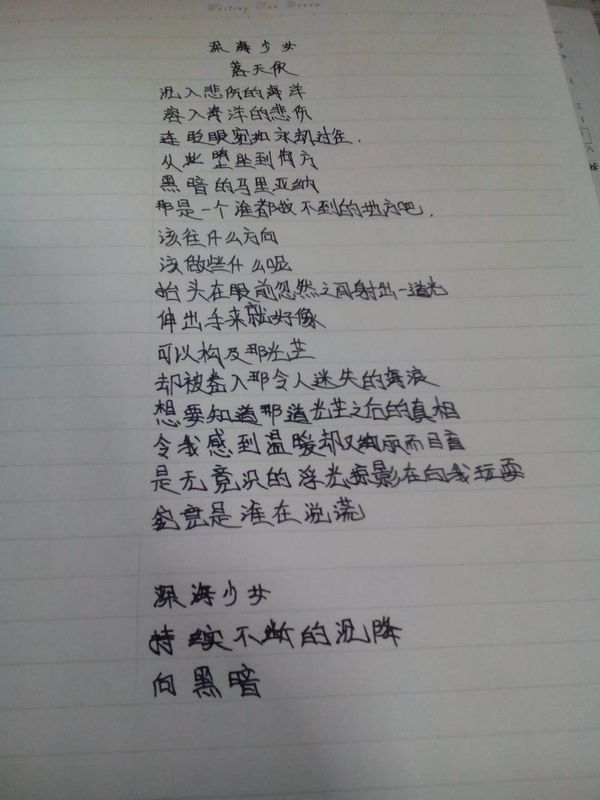 Writing Our Dream
深海少女
落天依
沉入悲伤的海洋
溶入海洋的悲伤
连眨眼宛如永劫过往.
从此堕坠到何方
黑暗的马里亚纳
那是一个谁都做不到的地方吧.
该往什么方向
该做些什么呢
抬头在眼前忽然之间射出一道光
伸出手来就好像
可以构及那光芒
却被卷入那令人迷失的海浪
想要知道那道光芒之后的真相
令我感到温暖却又绚 而目盲
是无意识的浮光掠影在向我玩耍
究竟是谁在说谎
深海少女
持续不断的沉降
向黑暗